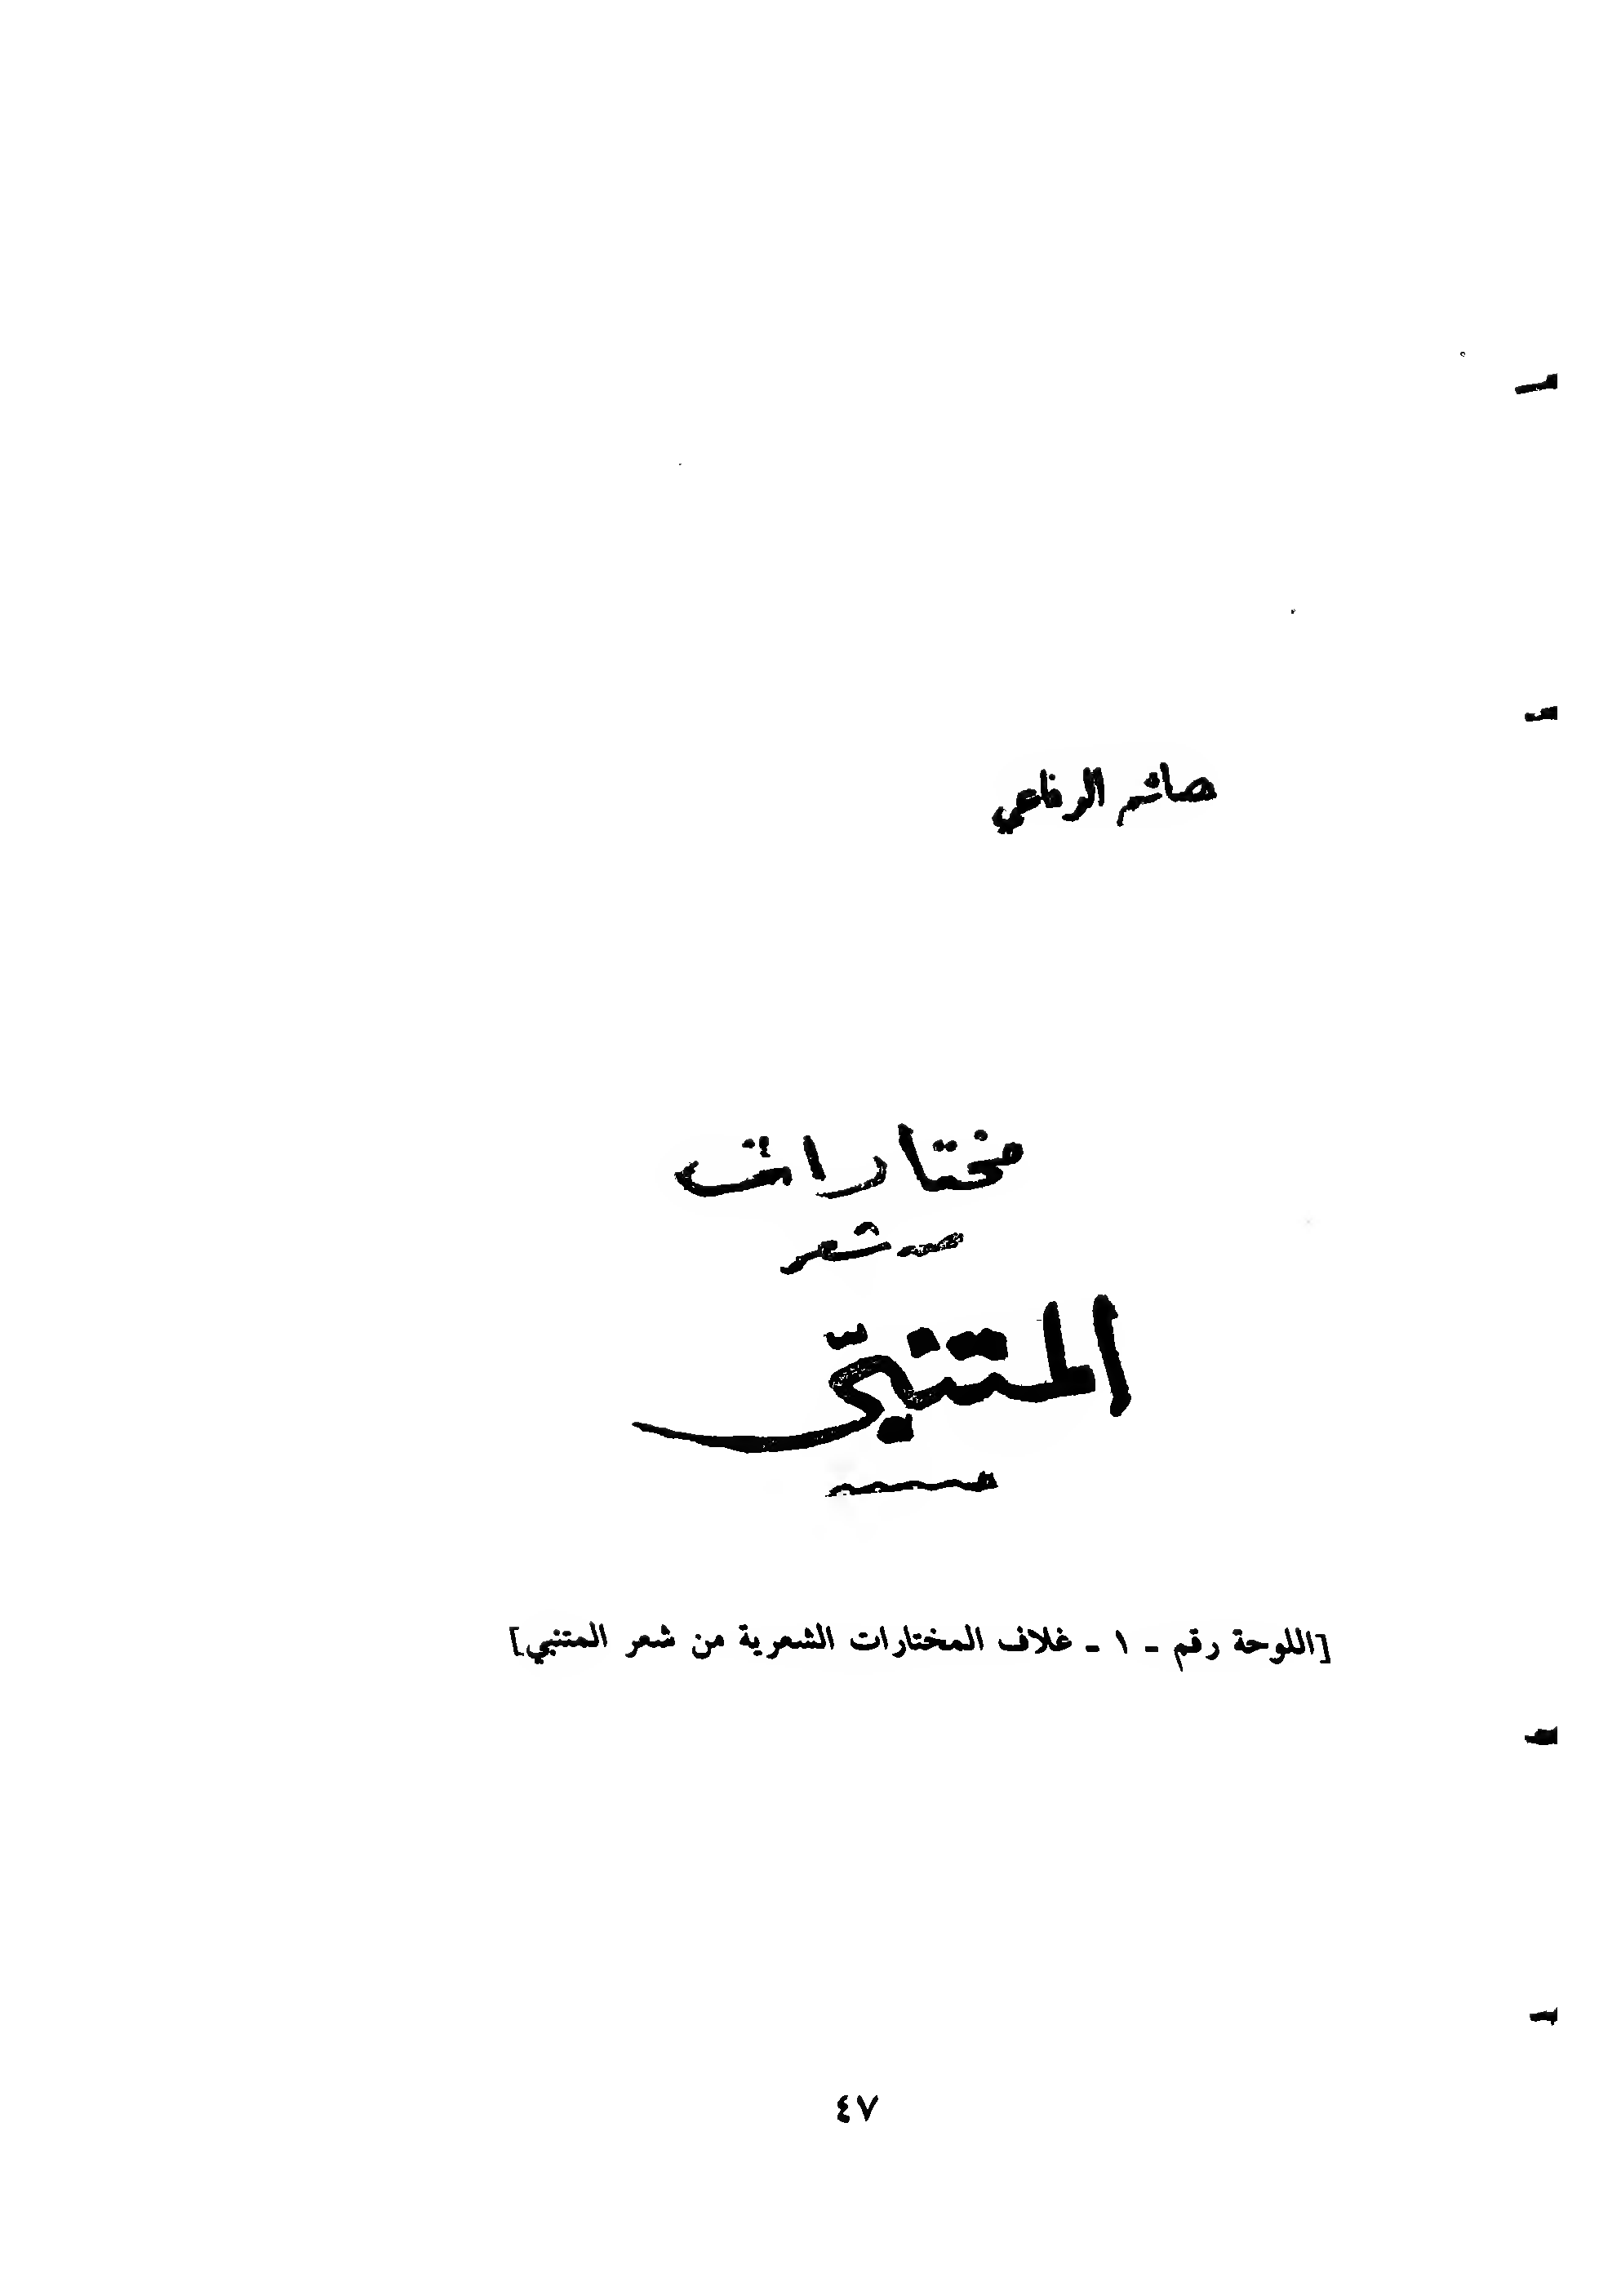 هاشم الرفاعي
مختارات
من شعر
المتنبّي
[اللوحة رقم - ١ - غلاف المختارات الشعرية من شعر المتنبي]
٤٧